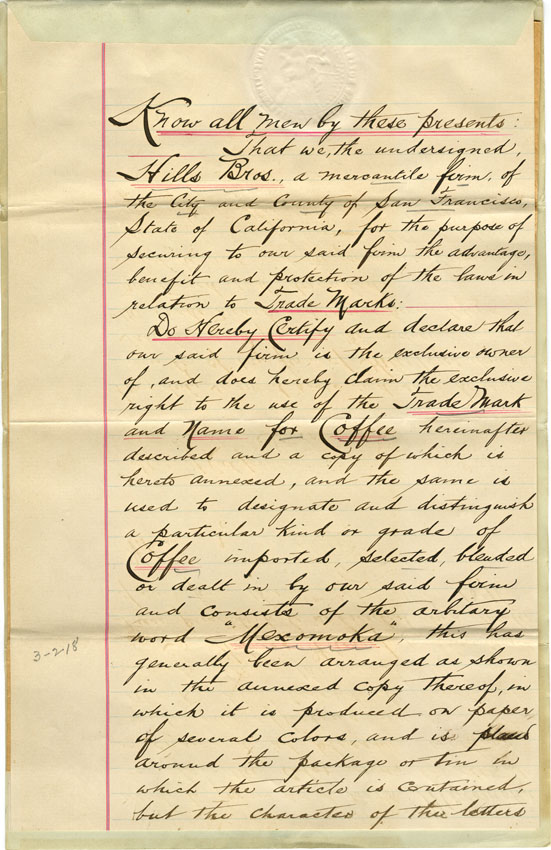 Know all men by these presents:
That we, the undersigned,
Hills Bros., a mercantile firm, of
the City and County of San Francisco,
State of California, for the purpose of
securing to our said firm the advantage,
benefit and protection of the laws in
relation to Trade Marks:
Do Hereby Certify and declare that
our said firm is the exclusive owner
of, and does hereby claim the exclusive
right to the use of the Trade Mark
and Name for Coffee hereinafter
described and a copy of which is
hereto annexed, and the same is
used to designate and distinguish
a particular kind or grade of
Coffee imported, selected, blended
or dealt in by our said firm
and consists of the arbitary
word "Mexomoka", this has
generally been arranged as shown
in the annexed copy thereof, in
which it is produced on paper
of several colors, and is
around the package or tin in
which the article is contained,
but the character of the letters
3-2-18